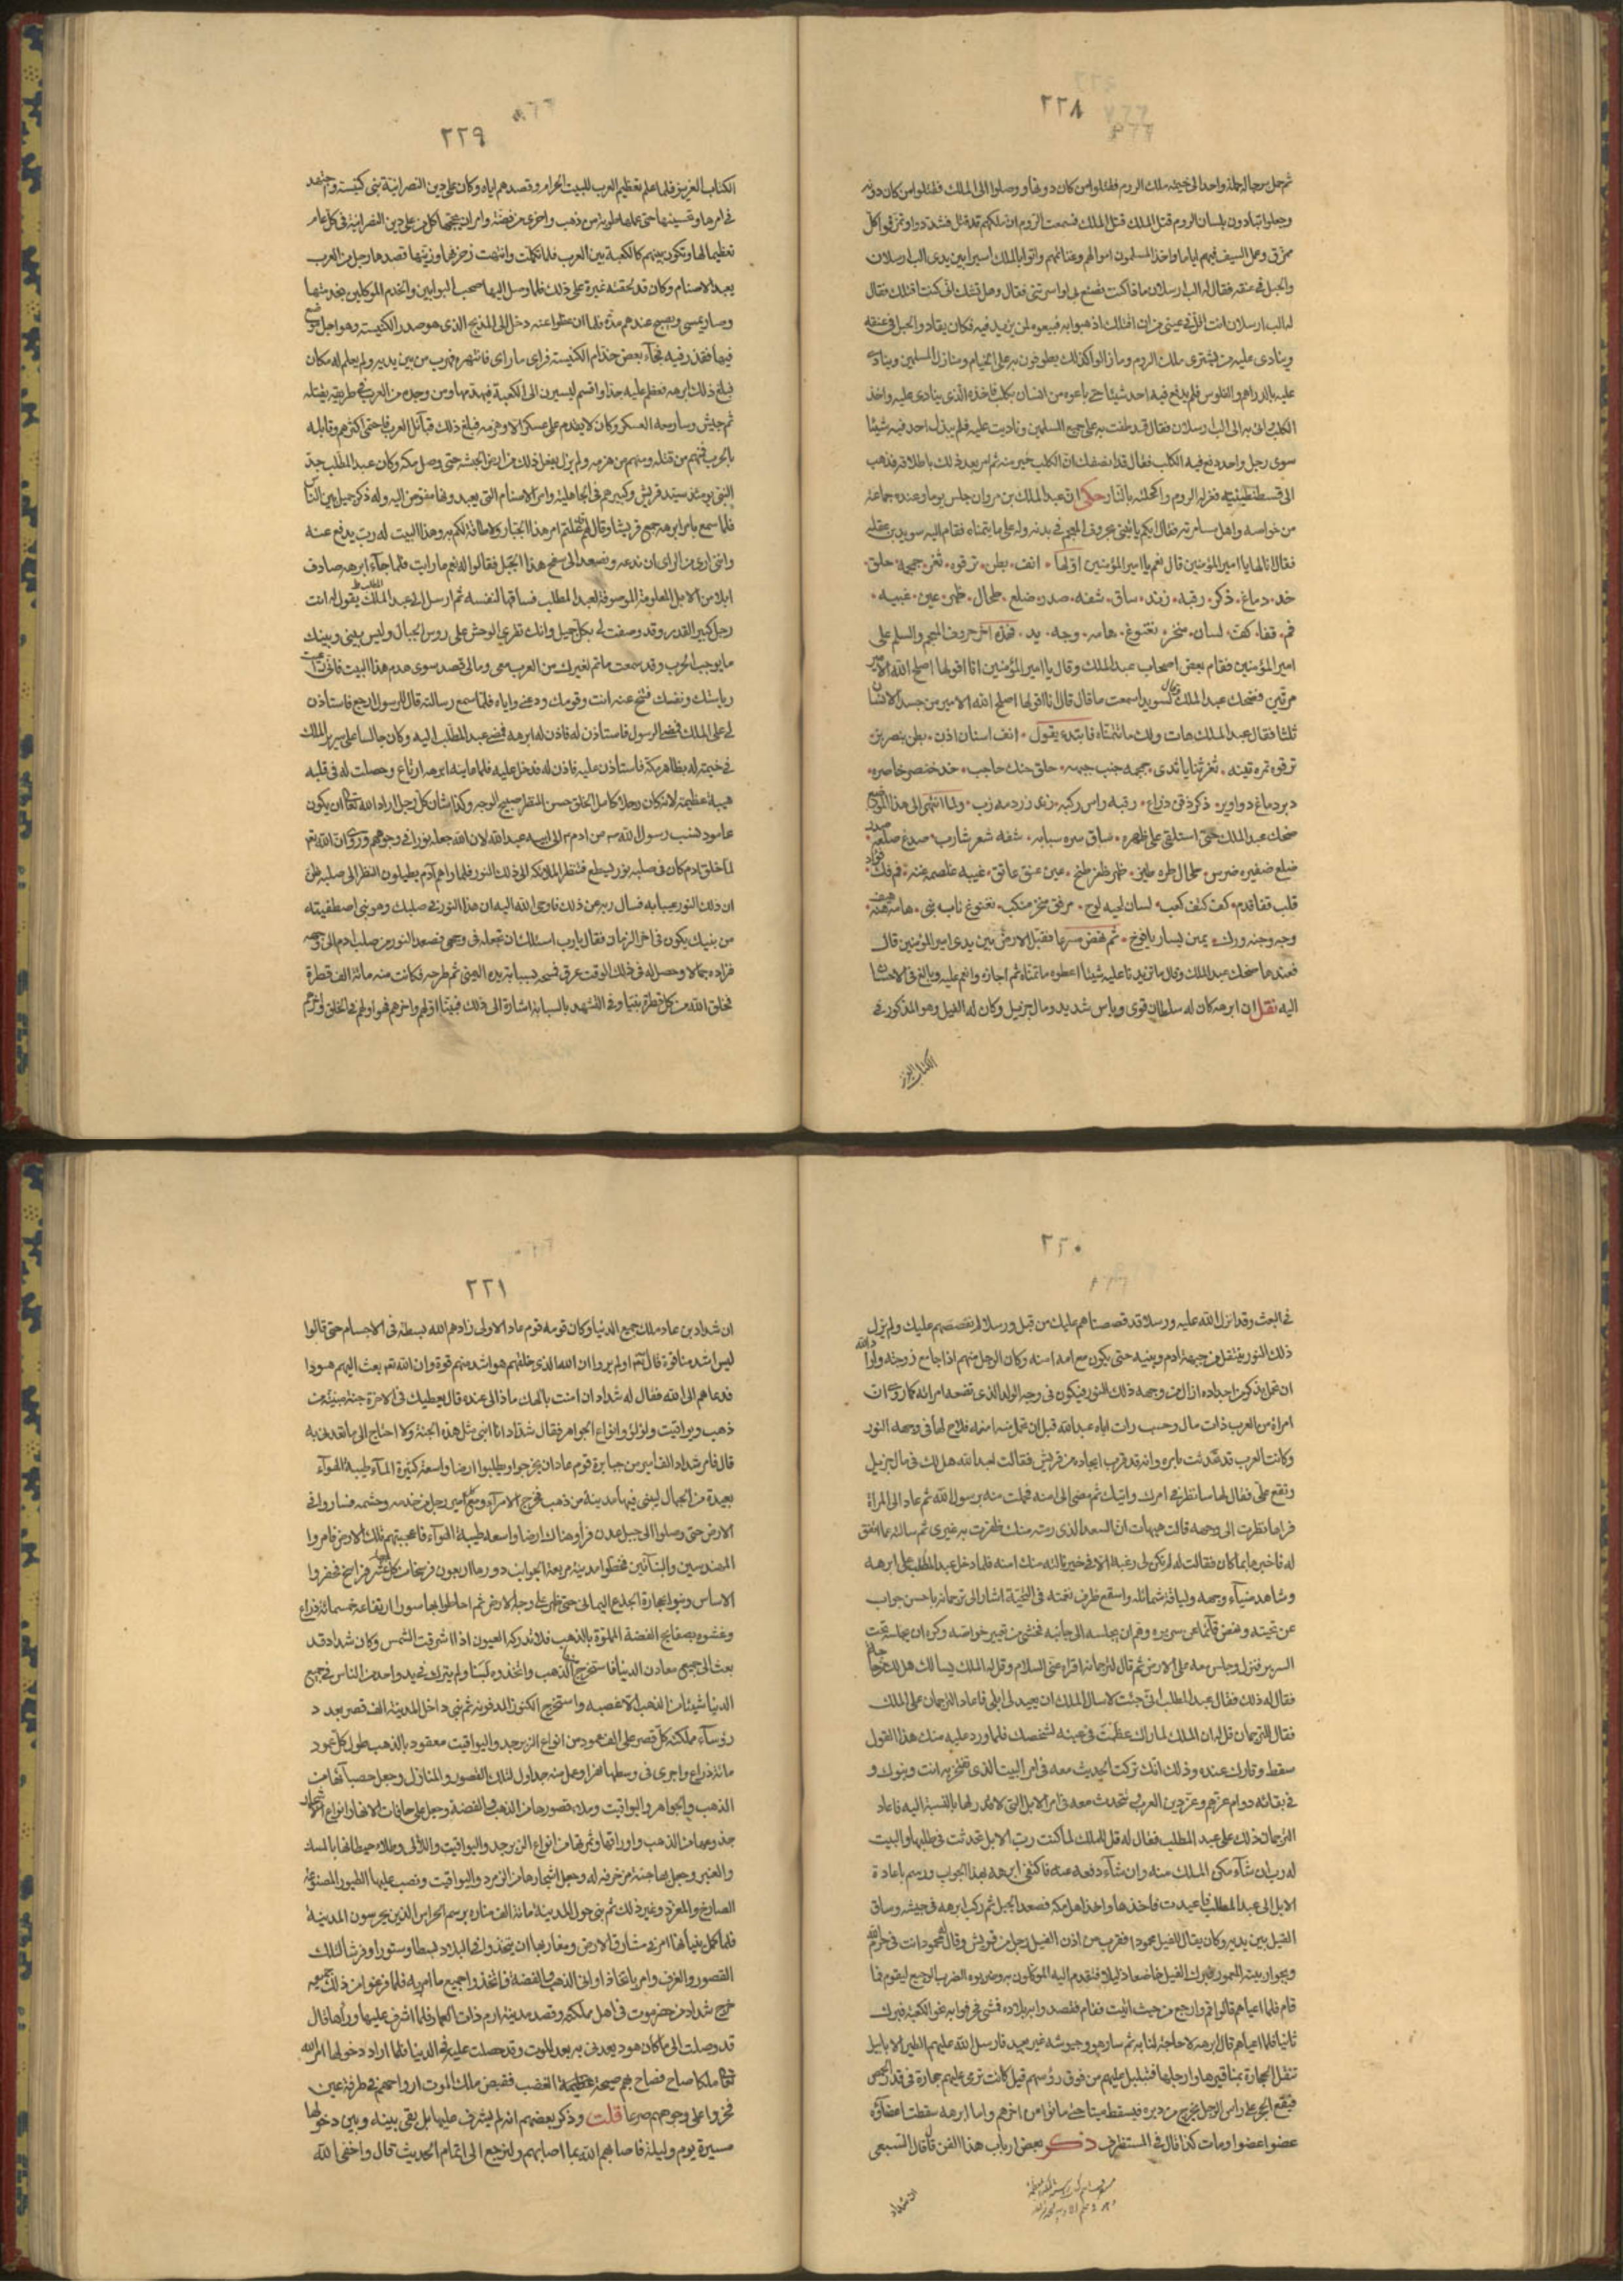 ٢٢٨
ثم حمل برجاله حملة واحد الى خيمة ملك الروم فقتلوا من كان دونها ووصلوا الى الملك فقتلوا من كان دونه
وجعلوا ينادون بلسان الروم قتل الملك قتل الملك فسمعت الروم ان ملكهم قد قتل فتبددوا وتمزقوا كل
ممزق وعمل السيف فيهم اياما واخذ المسلمون اموالهم وغنائمهم واتوا بالملك اسيرا بين يدى الب ارسلان
والحبل فى عنقه فقال له الب ارسلان ما ذا كنت تصنع بى لو اسرتنى فقال وهل تشك انى كنت اقتلك فقال
له الب ارسلان انت اقل فى عينى من ان اقتلك اذهبوا به فبيعوه لمن يزيد فيه فكان يقاد والحبل فى عنقه
وينادى عليه من يشترى ملك الروم وما زالوا كذلك يطوفون به على الخيام ومنازل المسلمين وينادى
عليه بالدراهم والفلوس فلم يدفع فيه احد شيئا حتى باعوه من انسان بكلب فاخذه الذى ينادى عليه واخذ
الكلب واتى به الى الب ارسلان فقال قد طفت به على جميع المسلمين وناديت عليه فلم يبذل احد فيه شيئا
سوى رجل واحد دفع فيه الكلب فقال قد انصفك ان الكلب خير منه ثم امر بعد ذلك باطلاقه فذهب
الى قسطنطينية فعزله الروم واكحلته بالنار حكى ان عبد الملك بن مروان جلس يوما وعنده جماعة
من خواصه واهل مسامرته فقال ايكم يأتينى بحروف المعجم فى بدنه وله على ما يتمناه فقام اليه سويد بن غفلة
فقال انا لها يا امير المؤمنين قال نعم يا امير المؤمنين اولها انف بطن ترقوه ثغر جمجمه حلق
خد دماغ ذكر رقبه زند ساق شفه صدر ضلع طحال ظهر عين غببه
فم قفا كف لسان منخر نغنوغ هامه وجه يد فهذه اخر حروف المعجم والسلم على
امير المؤمنين فقام بعض اصحاب عبد الملك وقال يا امير المؤمنين انا اقولها اصلح الله الامير
مرتين فضحك عبد الملك وقال لسويد اسمعت ما قال قال انا اقولها اصلح الله الامير من جسد الانسان
ثلثا فقال عبد الملك هات ولك ما تتمناه فابتدء يقول انف اسنان اذن بطن بنصر بز
ترقوه تمره تينه ثغر ثنايا ثدى جمجمه جنب جبهه حلق حنك حاجب خد خنصر خاصره
دبر دماغ ذكر ذقن ذراع رقبه راس ركبه زند زردمه زب ولما انتهى الى هذا الموضع
ضحك عبد الملك حتى استلقى على ظهره ساق سره سبابه شفه شعر شارب صدر صدغ صلعه
ضلع ضفيره ضرس طحال طره ظهر ظفر عين عنق عاتق غببه غلصمه غنه فم فك فؤاد
قلب قفا قدم كف كتف كعب لسان لحيه لوح مرفق منخر منكب نغنوغ ناب هامه
وجه وجنه ورك يمين يسار يافوخ ثم نهض مسرعا فقبل الارض بين يدى امير المؤمنين قال
فعندها ضحك عبد الملك وقال ما تزيدنا عليه شيئا اعطوه ما تمناه ثم اجازه وانعم عليه وبالغ فى الاحسان
اليه نقل ان ابرهه كان له سلطان قوى وباس شديد ومال جزيل وكان له الفيل وهو المذكور فى
الكتاب العزيز
٢٢٩
الكتاب العزيز فلما علم تعظيم العرب للبيت الحرام وقصدهم اياه وكان على دين النصرانية بنى كنيسة واجتهد
فى امرها وتحسينها حتى عملها طوبة من ذهب واخرى من فضة وامر ان يحجها كل من على دين النصرانية فى كل عام
تعظيما لها وتكون بينهم كالكعبة بين العرب فلما تكملت وانتهت زخرفها وزينتها قصدها رجل من العرب
يعبد الاصنام وكان قد لحقته غيرة على ذلك فلما وصل اليها صحب البوابين والخدم الموكلين بخدمتها
وصار يمسى ويصبح عندهم مدة فلما ان غفلوا عنه دخل الى المذبح الذى هو صدر الكنيسة وهو اجل موضع
فيها فقذر فيه فجآء بعض خدام الكنيسة فراى ما راى فاشهره فهرب من بين يديه ولم يعلم له مكان
فبلغ ذلك ابرهه فعظم عليه جدا واقسم ليسيرن الى الكعبة فيهدمها ومن وجده من العرب فى طريقه يقتله
ثم جيش وسار معه العسكر وكان لا يقدم على عسكر الا وهزمه فبلغ ذلك قبآئل العرب فاحتمى اكثرهم وقابله
بالحرب فمنهم من قتله ومنهم من هزمه ولم يزل يفعل ذلك من ارض الحبشه حتى وصل مكة وكان عبد المطلب جد
النبى يومئذ سيد قريش وكبيرهم فى الجاهلية وامر الاصنام التى يعبدونها مفوض اليه وله ذكر جميل بين الناس
فلما سمع بامر ابرهه جمع قريشا وقال لهم قد علمتم امر هذا الجبار ولا طاقة لكم به وهذا البيت له رب يدفع عنه
وانى ارى من الراى ان ندعه ونصعد الى سفح هذا الجبل فقالوا له نعم ما رايت فلما جآء ابرهه صادف
ابلا من الابل المعلومة الموسومة لعبد المطلب فساقها لنفسه ثم ارسل الى عبد المطلب يقول له انت
رجل كبير القدر وقد وصفت لى بكل جميل وانك تقرى الوحش على روس الجبال وليس بينى وبينك
ما يوجب الحرب وقد سمعت ما تم لغيرك من العرب معى ومالى قصد سوى هدم هذا البيت فان احببت
رياستك ونفسك فتنح عنه انت وقومك ودعنى واياه فلما سمع رسالته قال للرسول ارجع فاستأذن
لى على الملك فمضى الرسول فاستأذن له فاذن له ابرهه فمضى عبد المطلب اليه وكان جالسا على سرير الملك
فى خيمة له بظاهر مكة فاستأذن عليه فاذن له فدخل عليه فلما عاينه ابرهه ارتاع وحصلت له فى قلبه
هيبة عظيمة لانه كان رجلا كامل الخلق حسن المنظر صبيح الوجه وكذا شان كل رجل اراد الله تعالى ان يكون
عامود لنسب رسول الله ص من ادم الى ابيه عبد الله لان الله جعله نورا فى وجوههم وروى ان الله تع
لما خلق ادم كان فى صلبه نور يسطع فتنظر الملائكه الى ذلك النور فلما راهم آدم يطيلون النظر الى صلبه ظن
ان ذلك النور عيبا به فسال ربه عن ذلك فاوحى الله اليه ان هذا النور فى صلبك وهو نبى اصطفيته
من بنيك يكون فى اخر الزمان فقال يا رب اسئلك ان تجعله فى وجهى فصعد النور من صلب ادم الى وجهه
فزاده جمالا وحصل له فى ذلك الوقت عرق فمسحه بسبابة يده اليمنى ثم طرحه فكانت منه مائة الف قطرة
فخلق الله من كل قطرة نبيا وفى التشهد بالسبابة اشارة الى ذلك فنبينا اولهم واخرهم فهو اولهم فى الخلق واخرهم
٢٣٠
فى البعث وقد انزل الله عليه ورسلا قد قصصناهم عليك من قبل ورسلا لم نقصصهم عليك ولم يزل
ذلك النور ينتقل من جبهة ادم وبنيه حتى يكون مع امه امنه وكان الرجل منهم اذا جامع زوجته واراد الله
ان تحمل بذكر من اجداده ازال من وجهه ذلك النور فيكون فى وجه الولد الذى تضعه امرأته كما روى ان
امراة من العرب ذات مال وحسب رات اباه عبد الله قبل ان تحمل منه امنه فلاح لها فى وجهه النور
وكانت العرب قد تحدثت بامره وانه قد قرب ايجاده من قريش فقالت لعبد الله هل لك فى مال جزيل
وتقع على فقال لها سانظر فى امرك واتيك ثم مضى الى امنه فحملت منه برسول الله ثم عاد الى المراة
فراها نظرت الى وجهه قالت هيهات ان السعد الذى رمته منك ظفرت به غيرى ثم سالته عما اتفق
له فاخبرها بما كان فقالت له لم يكن لى رغبة الا فى خير نالته منك امنه فلما دخل عبد المطلب على ابرهه
وشاهد ضيآء وجهه ولياقة شمائله واسمع ظرف نغمته فى التحية اشار الى ترجمانه باحسن جواب
عن تحيته ونهض قآئما عن سريره وهم ان يجلسه الى جانبه فخشى من تعيير خواصه وكره ان يجلسه تحت
السرير فنزل وجلس معه على الارض ثم قال لترجمانه اقراه عنى السلام وقل له الملك يسألك هل لك من حاجة
فقال له ذلك فقال عبد المطلب انى جئت لاسال الملك ان يعيد لى ابلى فاعاد الترجمان على الملك
فقال للترجمان قل له ان الملك لما راك عظمت فى عينه لشخصك فلما ورد عليه منك هذا القول
سقط وقارك عنده وذلك انك تركت الحديث معه فى امر البيت الذى تفتخر به انت وبنوك و
فى بقائه دوام عزهم وعز دين العرب وتتحدث معه فى امر الابل التى لا قدر لها بالنسبة اليه فاعاد
الترجمان ذلك على عبد المطلب فقال له قل للملك لما كنت رب الابل تحدثت فى طلبها والبيت
له رب ان شآء مكن الملك منه وان شآء دفعه عنه فاكتفى ابرهه بهذا الجواب ورسم باعادة
الابل الى عبد المطلب فاعيدت فاخذها واخذ اهل مكة فصعد الجبل ثم ركب ابرهه فى جيشه وساق
الفيل بين يديه وكان يقال للفيل محمود فقرب من اذن الفيل رجل من قريش وقال له محمود انت فى حرم الله
وبجوار بيته المعمور فبرك الفيل خاضعا ذليلا فتقدم اليه الموكلون به وضربوه الضرب الوجيع ليقوم فما
قام فلما اعياهم قالوا قم وارجع من حيث اتيت فقام فقصد وابه بلاده فمشى فحرفوا به نحو الكعبة فبرك
ثانيا فلما اعياهم قال ابرهه لا حاجة لنا به ثم سار هو وجيوشه غير بعيد فارسل الله عليهم الطير الابابيل
تنقل الحجارة بمناقيرها وارجلها فتبلبل عليهم من فوق رؤسهم قيل كانت ترمى عليهم حجارة فى قدر الحمص
فيقع الحجر على راس الرجل يخرج من دبره فيسقط ميتا حتى ماتوا من اخرهم واما ابرهه سقطت اعضآؤه
عضوا عضوا ومات كذا قال فى المستظرف ذكر بعض ارباب هذا الفن قال قال الشعبى
ان شداد
٢٣١
ان شداد بن عاد ملك جميع الدنيا وكان قومه قوم عاد الاولى زادهم الله بسطة فى الاجسام حتى قالوا
ليس اشد منا قوة قال الله تعالى اولم يروا ان الله الذى خلقهم هو اشد منهم قوة وان الله تع بعث اليهم هودا
فدعاهم الى الله فقال له شداد ان امنت بالهك ماذا لى عنده قال يعطيك فى الاخرة جنة مبنية من
ذهب ويواقيت ولؤلؤ وانواع الجواهر فقال شداد انا ابنى مثل هذه الجنة ولا احتاج الى ما تعدنى به
قال فامر شداد الف امير من جبابرة قوم عاد ان يخرجوا ويطلبوا ارضا واسعة كثيرة المآء طيبة الهوآء
بعيدة من الجبال ليبنى فيها مدينة من ذهب فخرج الامرآء ومع كل امير رجل من خدمه وحشمه فساروا فى
الارض حتى وصلوا الى جبل عدن فرأوا هناك ارضا واسعة طيبة الهوآء فاعجبتهم تلك الارض فامروا
المهندسين والبنآئين فخطوا مدينة مربعة الجوانب دورها اربعون فرسخا من كل جهة عشر فراسخ فحفروا
الاساس وبنوا بحجارة الجدع اليمانى حتى ظهر على وجه الارض ثم احاطوا بها سورا ارتفاعه خمسمائة ذراع
وغشوه بصفايح الفضة المملوة بالذهب فلا تدركه العيون اذا اشرقت الشمس وكان شداد قد
بعث الى جميع معادن الدنيا فاستخرج منها الذهب واتخذوه لبنا ولم يترك فى يد واحد من الناس فى جميع
الدنيا شيئا من الذهب الا غصبه واستخرج الكنوز المدفونة ثم بنى داخل المدينة الف قصر بعدد
رؤسآء مملكته كل قصر على الف عمود من انواع الزبرجد واليواقيت معقود بالذهب طول كل عمود
مائة ذراع واجرى فى وسطها نهرا وعمل منه جداول لتلك القصور والمنازل وجعل حصبآئها من
الذهب والجواهر واليواقيت وملاء قصورها من الذهب والفضة وجعل على حافات الانهار انواع الاشجار
جذوعها من الذهب واوراقها وثمرها من انواع الزبرجد واليواقيت واللآلى وطلا حيطانها بالمسك
والعنبر وجعل بها جنة مزخرفة له وجعل اشجارها من الزمرد واليواقيت ونصب عليها الطيور المصنوعة
الصادح والمغرد وغير ذلك ثم بنى حول المدينة مائة الف مناره برسم الحراس الذين يحرسون المدينة
فلما كمل بنيانها امر فى مشارق الارض ومغاربها ان يتخذوا فى البلاد بسطا وستورا وفرشا لتلك
القصور والغرف وامر باتخاذ اوانى الذهب والفضة فاتخذوا جميع ما امر به فلما فرغوا من ذلك جميعه
خرج شداد من حضرموت فى اهل مملكته وقصد مدينة ارم ذات العماد فلما اشرف عليها ورآها قال
قد وصلت الى ما كان هود يعدنى به بعد الموت وقد حصلت عليه فى الدنيا فلما اراد دخولها امر الله
تعالى ملكا صاح فصاح بهم صيحة عظيمة الغضب فقبض ملك الموت ارواحهم فى طرفة عين
فخروا على وجوههم صرعا قلت وذكر بعضهم انه لم يشرف عليها بل بقى بينه وبين دخولها
مسيرة يوم وليلة فاصابهم الله بما اصابهم ولنرجع الى اتمام الحديث قال واخفى الله